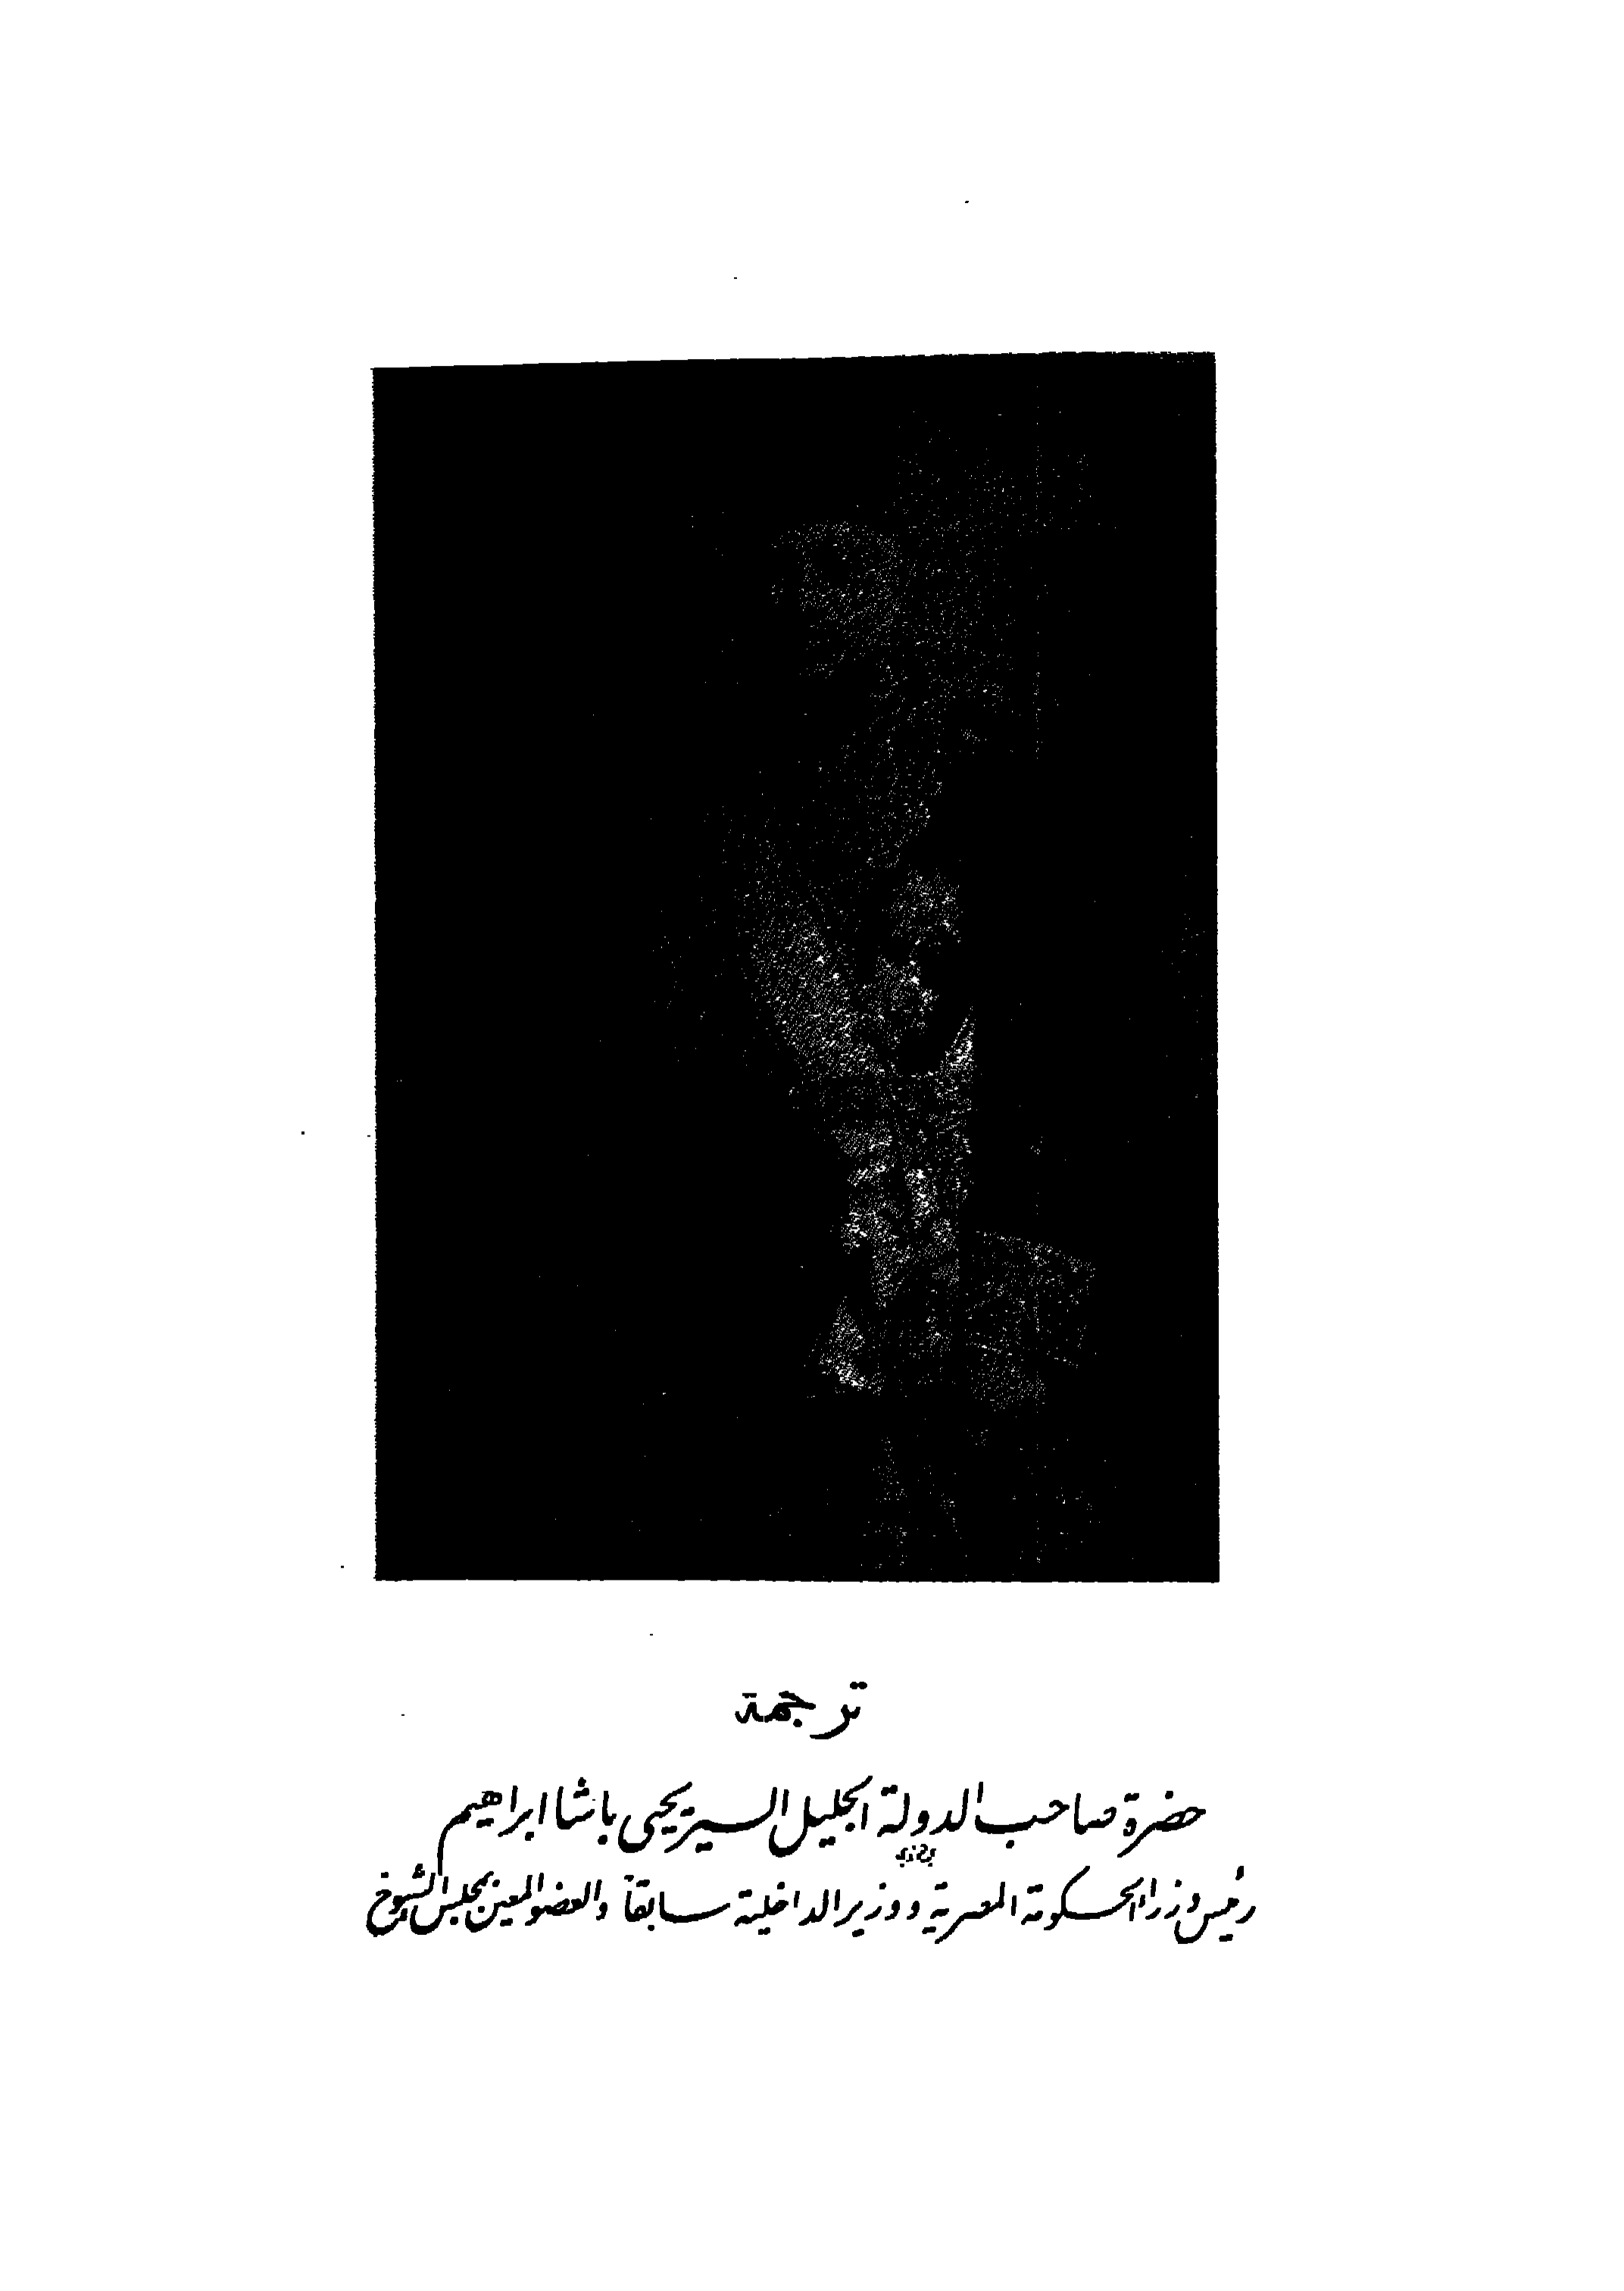 ترجمة
حضرة صاحب الدولة الجليل السير يحيى باشا ابراهيم
رئيس وزراء الحكومة المصرية ووزير الداخلية سابقاً والعضو المعين بمجلس الشيوخ